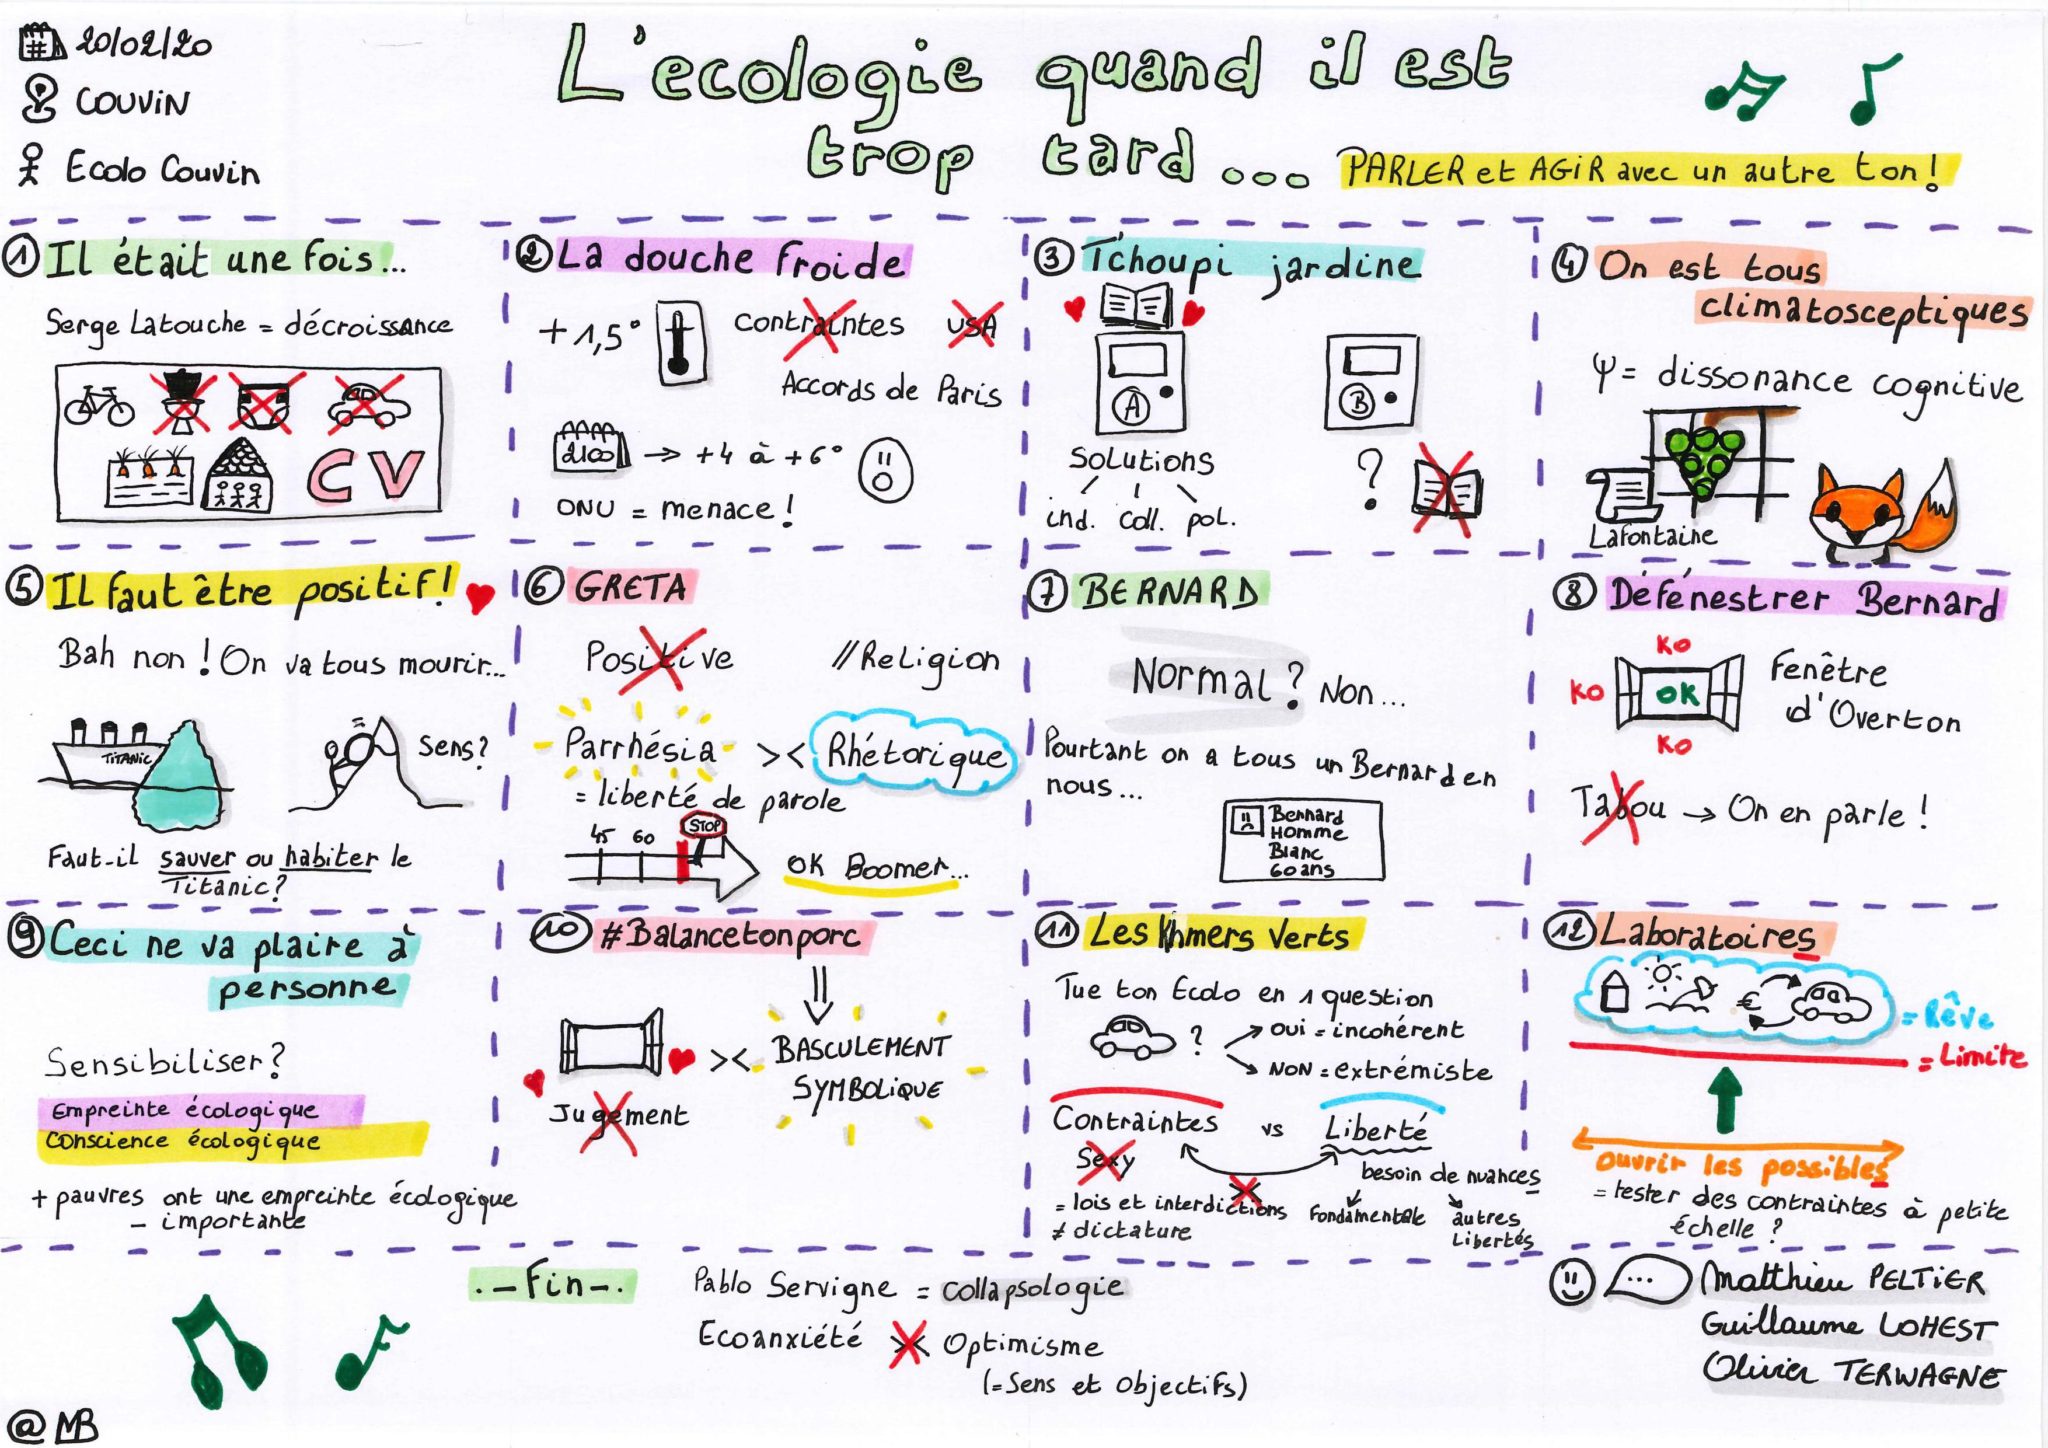 20/02/20
COUVIN
Ecolo Couvin
L'ecologie quand il est
trop tard...
PARLER et AGIR avec un autre ton!
1 Il était une fois...
Serge Latouche = décroissance
CV
2 La douche froide
+1,5° Contraintes USA
Accords de Paris
2100 → +4 à +6°
ONU = menace!
3 T'choupi jardine
A B
Solutions
ind. coll. pol.
?
4 On est tous
climatosceptiques
Ψ = dissonance cognitive
Lafontaine
5 Il faut être positif!
Bah non! On va tous mourir...
TITANIC
Sens?
Faut-il sauver ou habiter le
Titanic?
6 GRETA
Positive //Religion
Parrhésia >< Rhétorique
= liberté de parole
45 60 STOP
OK Boomer...
7 BERNARD
Normal? Non...
Pourtant on a tous un Bernard en
nous...
Bernard
Homme
Blanc
60 ans
8 Défénestrer Bernard
KO
KO OK
KO
Fenêtre
d'Overton
Tabou → On en parle!
9 Ceci ne va plaire à
personne
Sensibiliser?
Empreinte écologique
Conscience écologique
+ pauvres ont une empreinte écologique
- importante
10 #Balancetonporc
><
BASCULEMENT
SYMBOLIQUE
Jugement
11 Les Khmers Verts
Tue ton Ecolo en 1 question
? → oui = incohérent
→ NON = extrémiste
Contraintes vs Liberté
Sexy
besoin de nuances
= lois et interdictions
≠ dictature
Fondamentale
autres
Libertés
12 Laboratoires
€
= Rêve
= Limite
ouvrir les possibles
= tester des contraintes à petite
échelle?
.-Fin-.
Pablo Servigne = collapsologie
Ecoanxiété >< Optimisme
(= Sens et Objectifs)
...
Matthieu PELTIER
Guillaume LOHEST
Olivier TERWAGNE
@MB